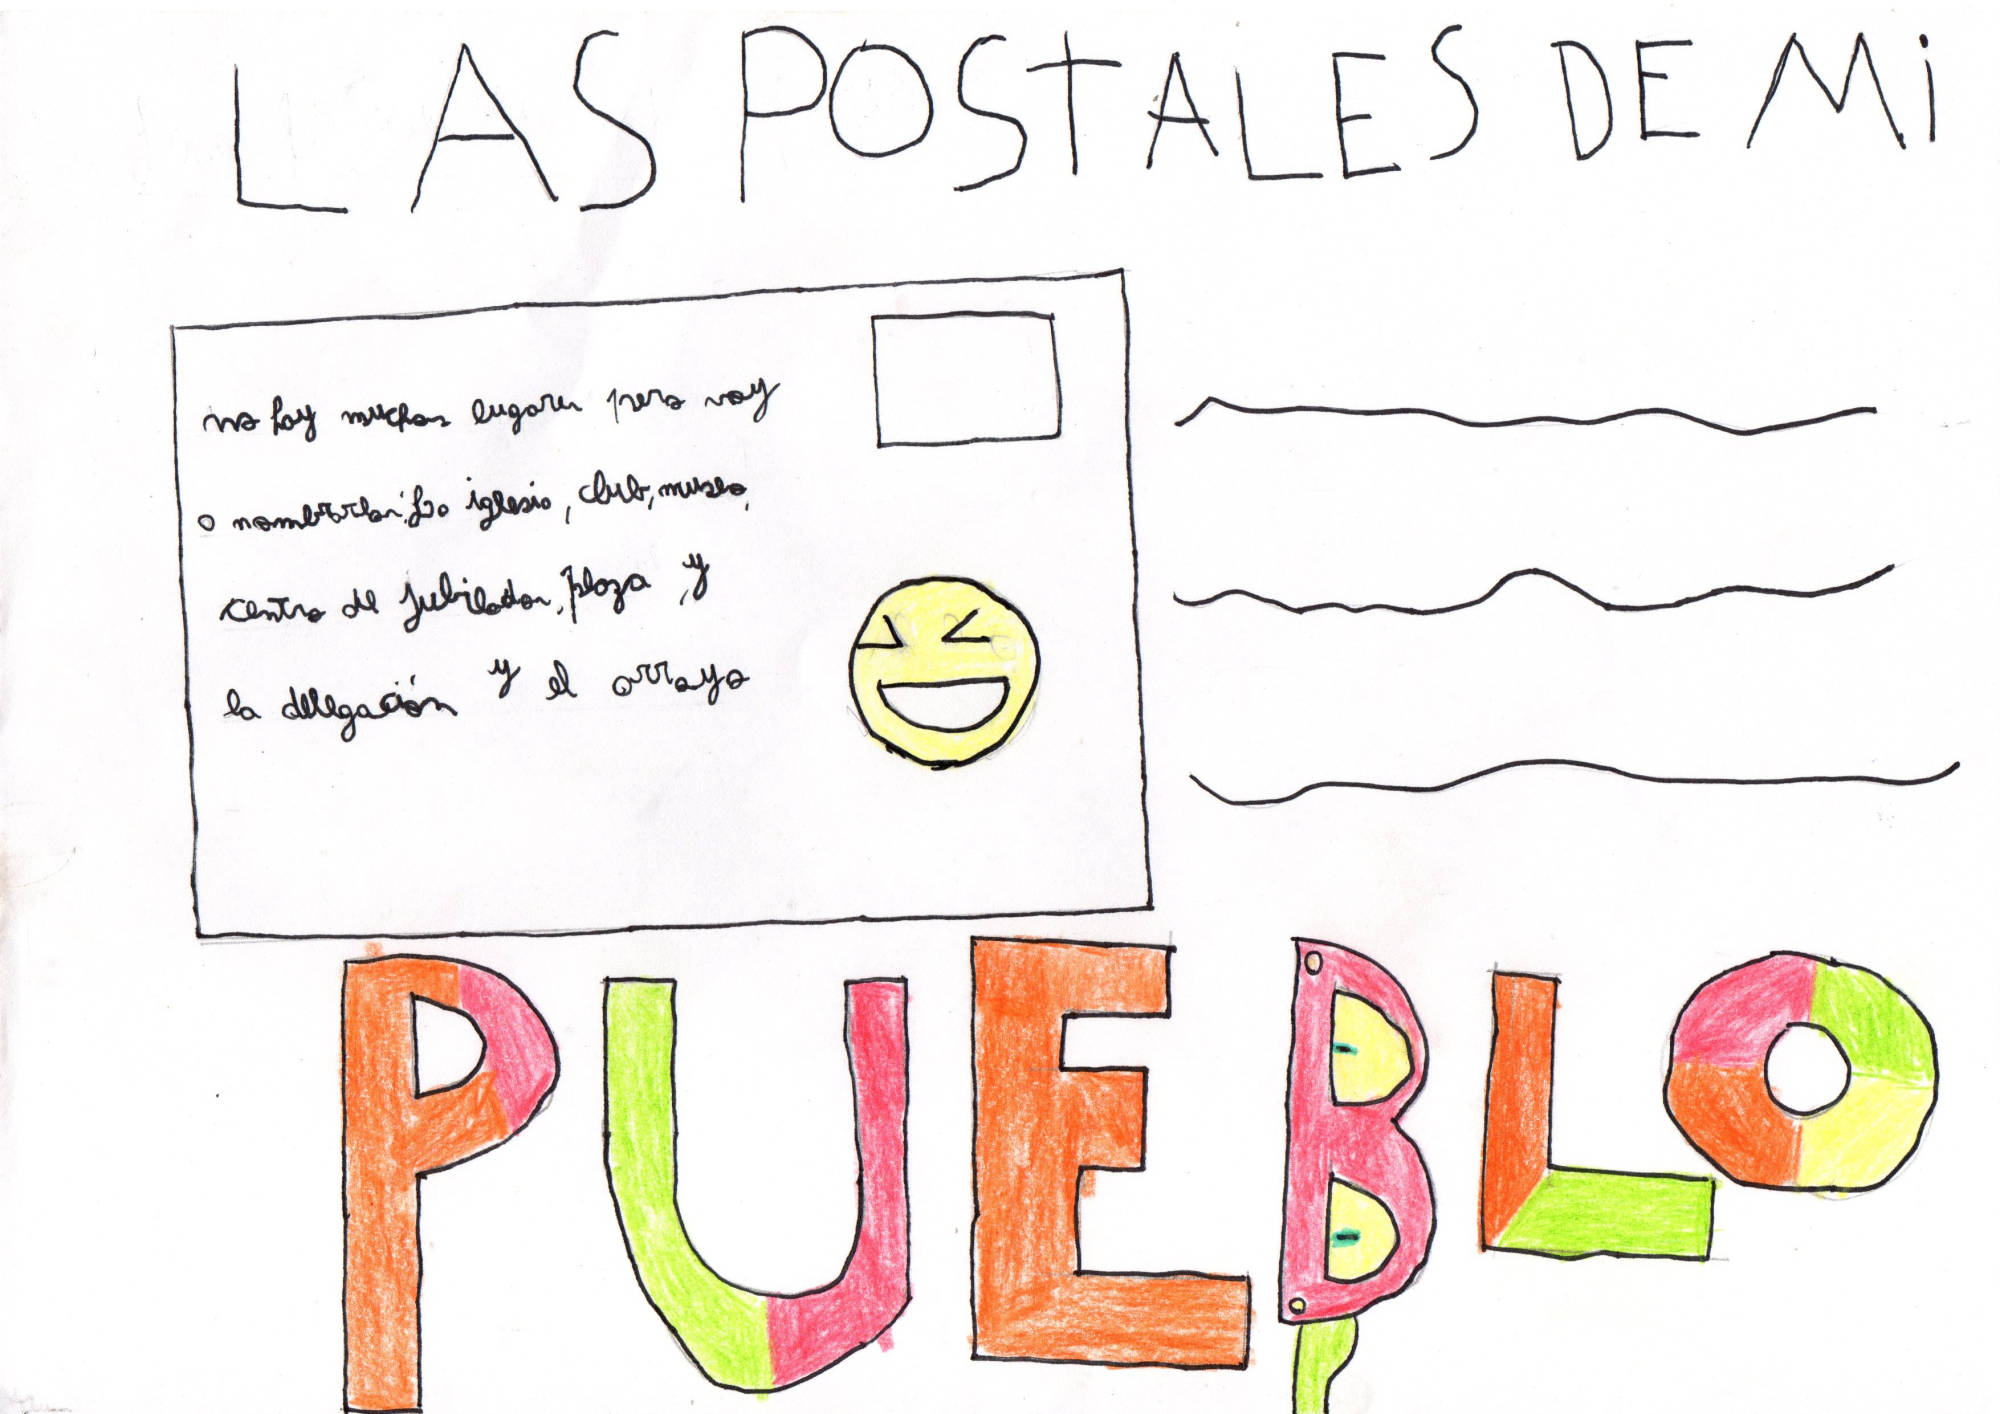 LAS POSTALES DE Mi
no hay muchos lugares pero voy
a nombrarlos: La iglesia, club, museo,
centro de jubilados, plaza, y
la delegación y el arroyo
PUEBLO